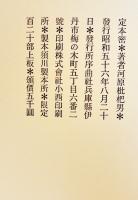 定本密＊著者河原枇杷男＊
発行昭和五十六年八月二十
日＊發行所序曲社兵庫縣伊
丹市梅の木町五丁目六番三
號＊印刷株式會社小西印刷
所＊製本須川製本所＊限定
百二十部上板＊頒價五千圓